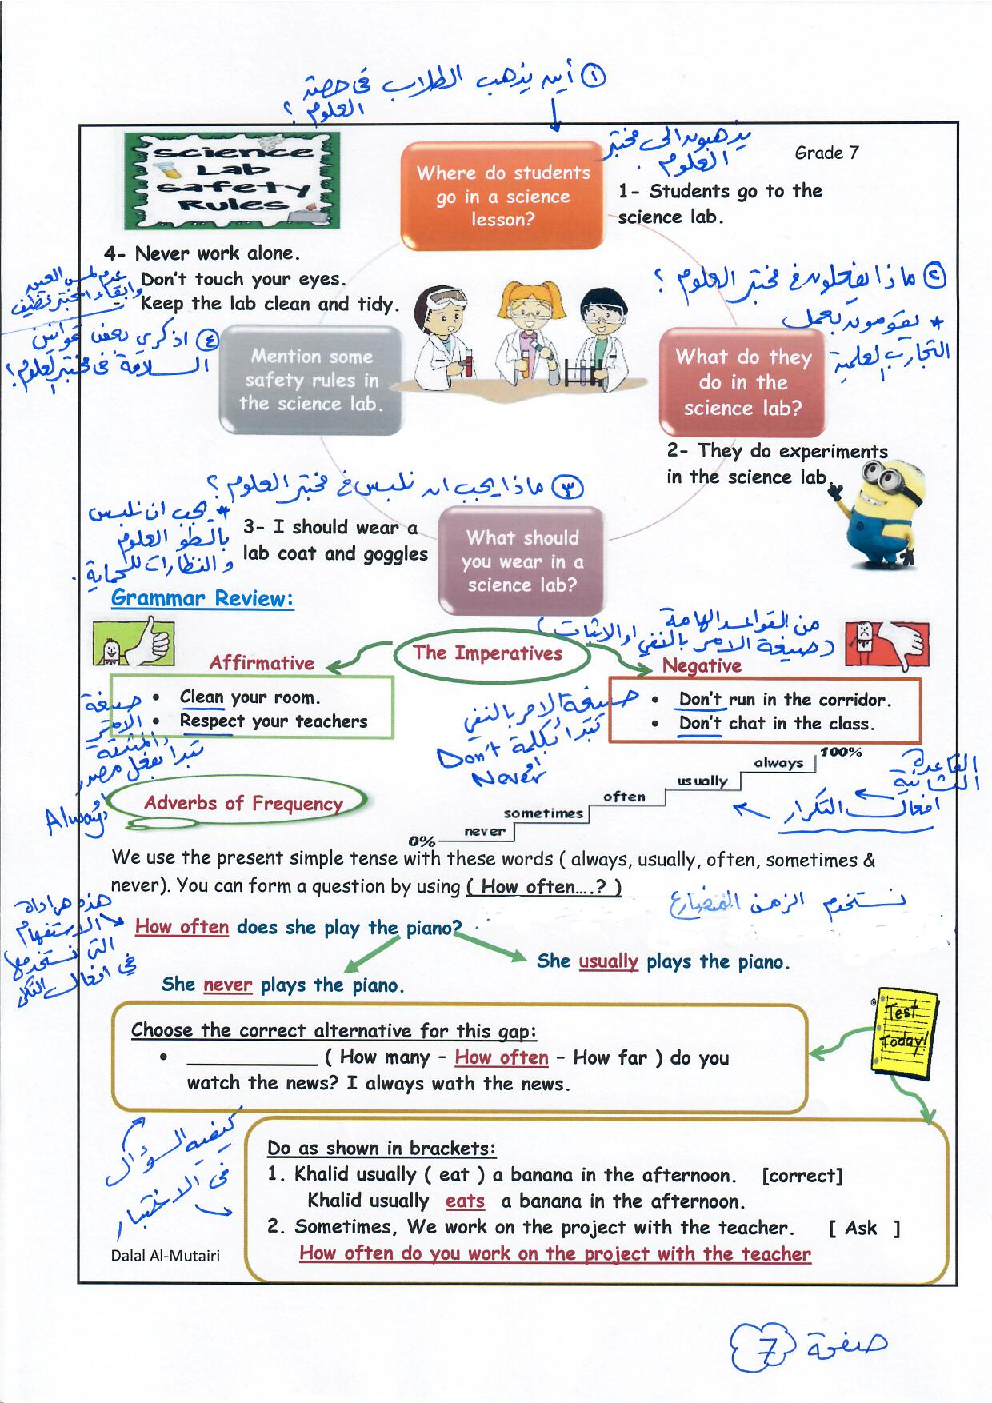 ① أين يذهب الطلاب في حصة
العلوم ؟
Science
Lab
Safety
Rules
Where do students
go in a science
lesson?
يذهبون الى مختبر
العلوم .
Grade 7
1- Students go to the
science lab.
4- Never work alone.
Don't touch your eyes.
Keep the lab clean and tidy.
عدم لمس العين
وابقاء المختبر نظيف
② ماذا يفعلون في مختبر العلوم ؟
* يقومون بعمل
التجارب العلمية
④ اذكري بعض قوانين
السلامة في مختبر العلوم ؟
Mention some
safety rules in
the science lab.
What do they
do in the
science lab?
2- They do experiments
in the science lab.
③ ماذا يجب ان نلبس في مختبر العلوم ؟
* يجب ان نلبس
بالطو العلوم
و النظارات للحماية .
3- I should wear a
lab coat and goggles
What should
you wear in a
science lab?
Grammar Review:
من القواعد الهامة
(صيغة الامر بالنفي او الاثبات)
The Imperatives
Affirmative
Negative
• Clean your room.
• Respect your teachers
• Don't run in the corridor.
• Don't chat in the class.
صيغة
الامر
المثبتة
تبدأ بفعل مصدر
أو
Always
صيغة الأمر بالنفي
تبدأ بكلمة
Don't
أو
Never
Adverbs of Frequency
0%
never
sometimes
often
usually
always
100%
القاعدة
الثانية
افعال التكرار
We use the present simple tense with these words ( always, usually, often, sometimes &
never). You can form a question by using ( How often....? )
نستخدم الزمن المضارع
هذه هي اداة
الاستفهام
التي نستخدمها
في افعال
How often does she play the piano?
She usually plays the piano.
She never plays the piano.
Choose the correct alternative for this gap:
• ______________ ( How many – How often – How far ) do you
watch the news? I always wath the news.
Test
Today!
كيفية السؤال
في الاختبار
Do as shown in brackets:
1. Khalid usually ( eat ) a banana in the afternoon. [correct]
Khalid usually eats a banana in the afternoon.
2. Sometimes, We work on the project with the teacher. [ Ask ]
How often do you work on the project with the teacher
Dalal Al-Mutairi
صفحة 7